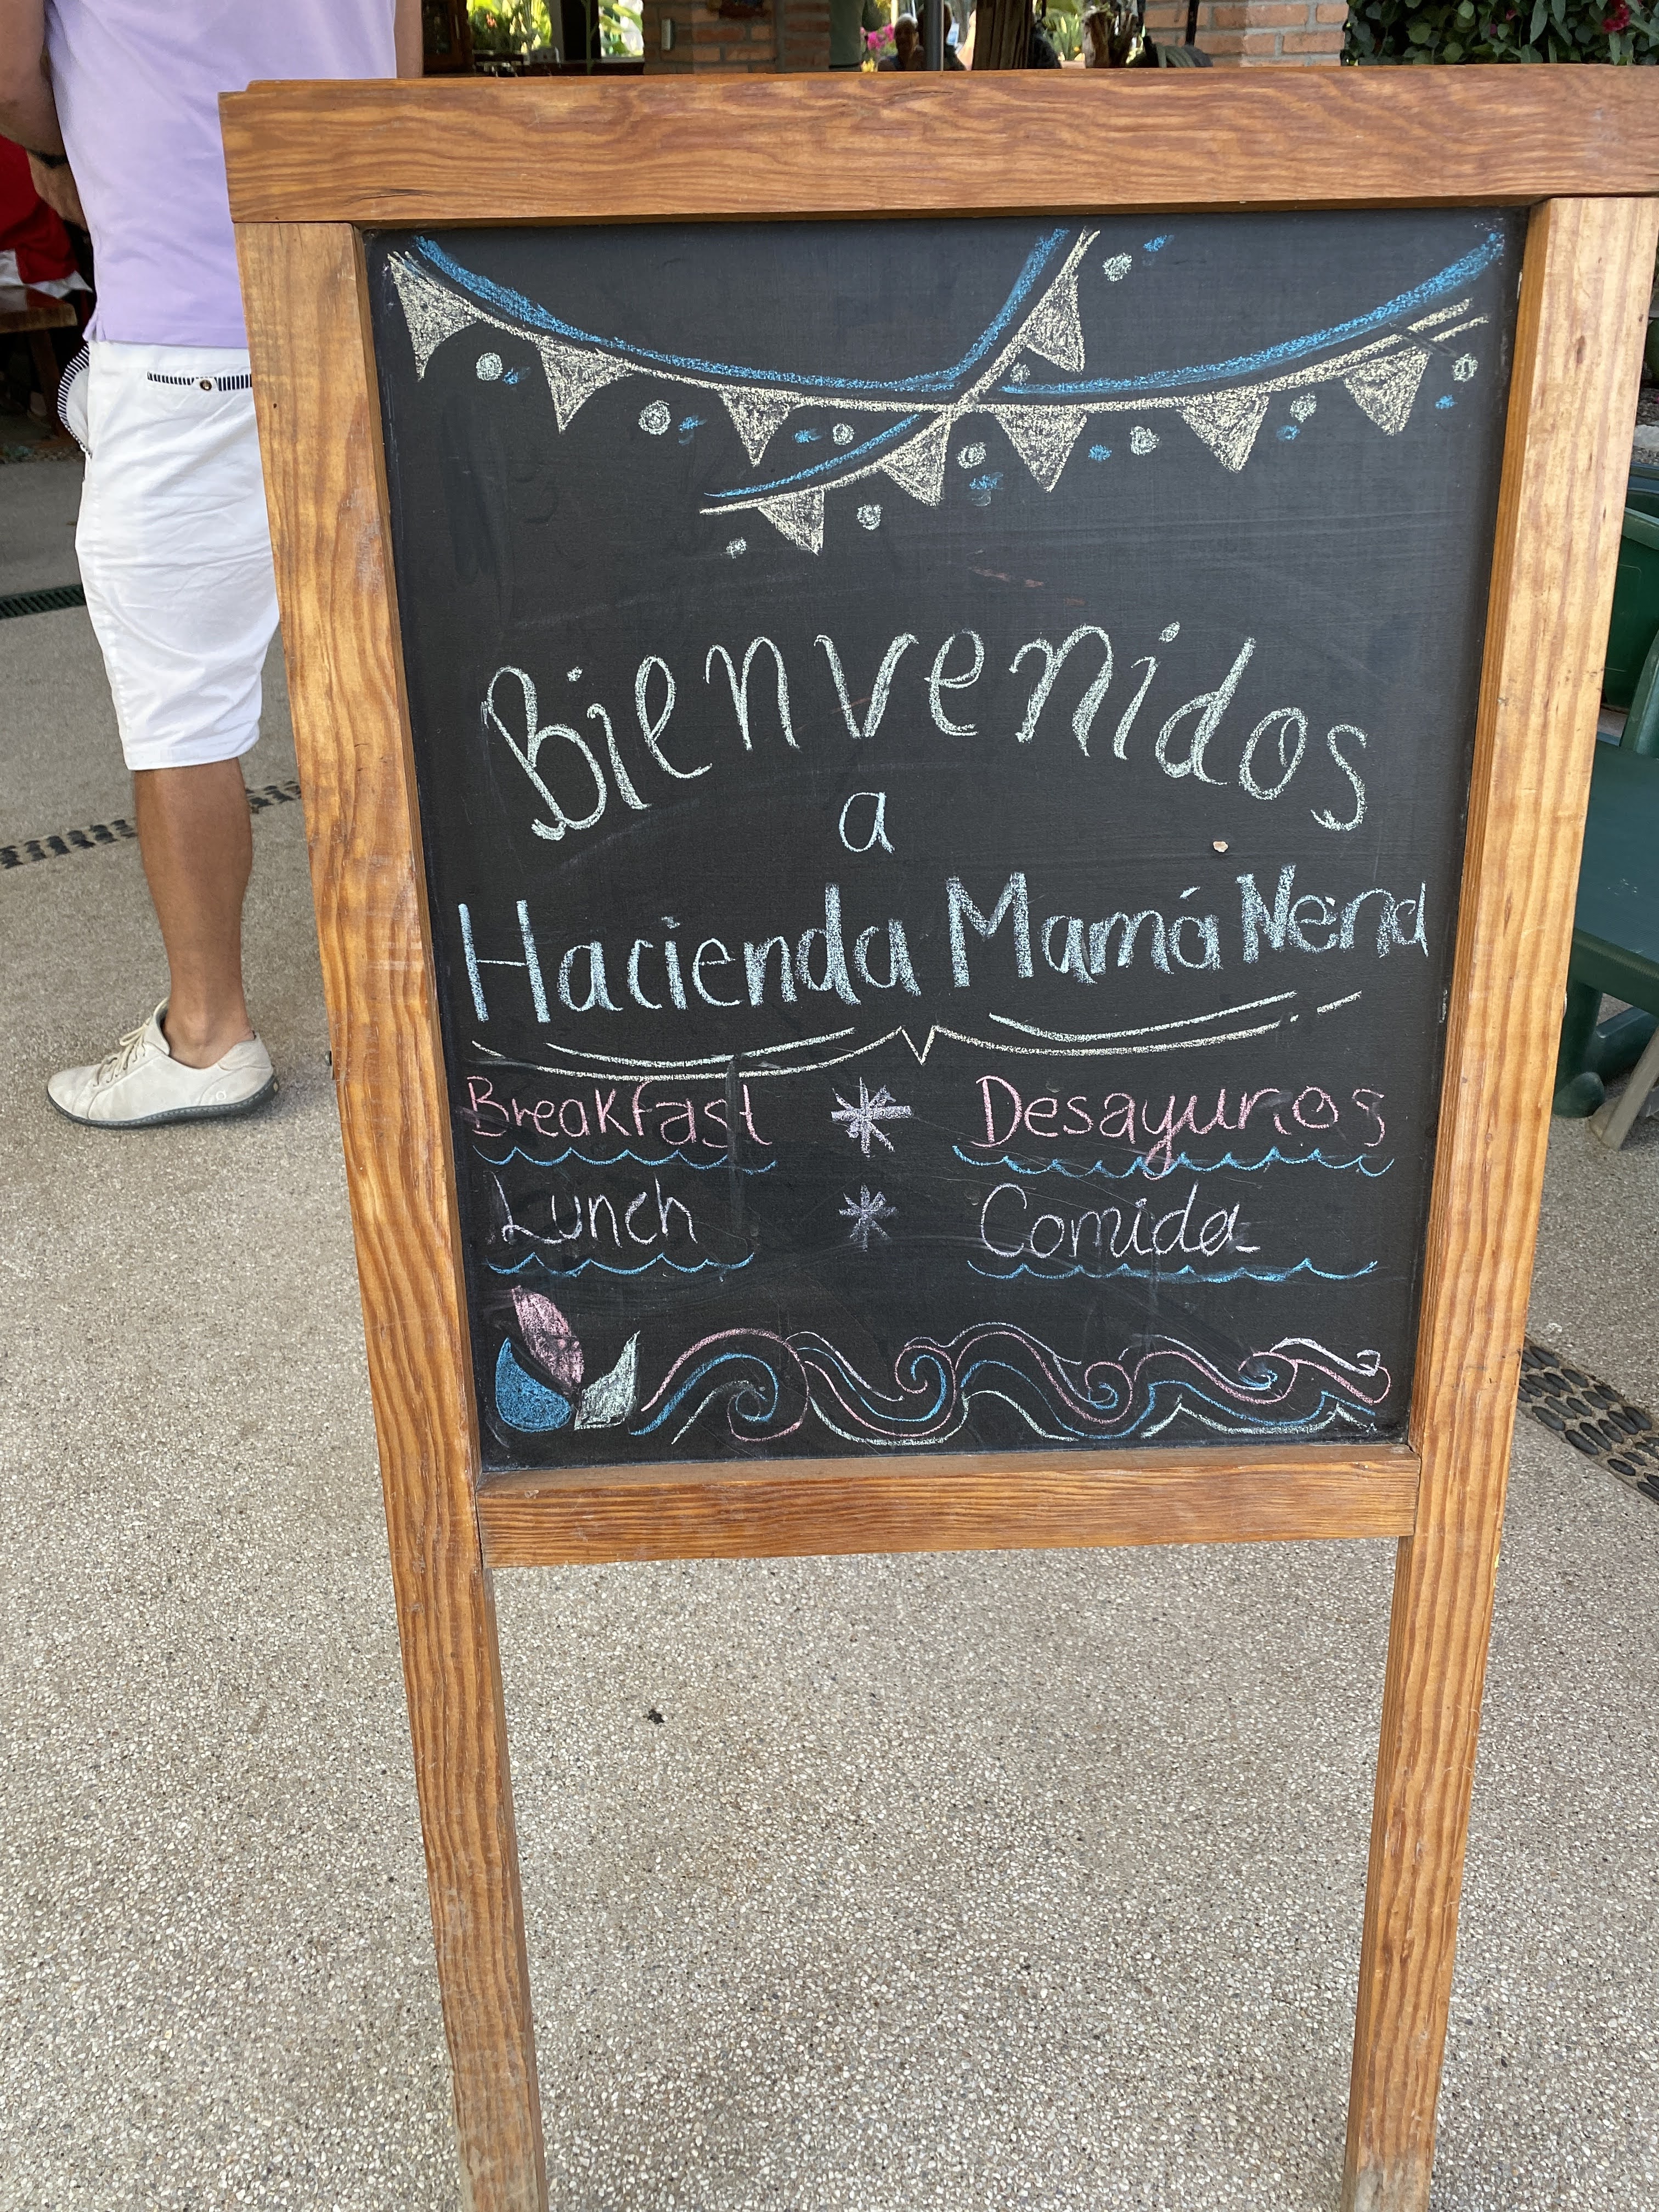 Bienvenidos
a
Hacienda Mamá Nena
Breakfast * Desayunos
Lunch * Comida